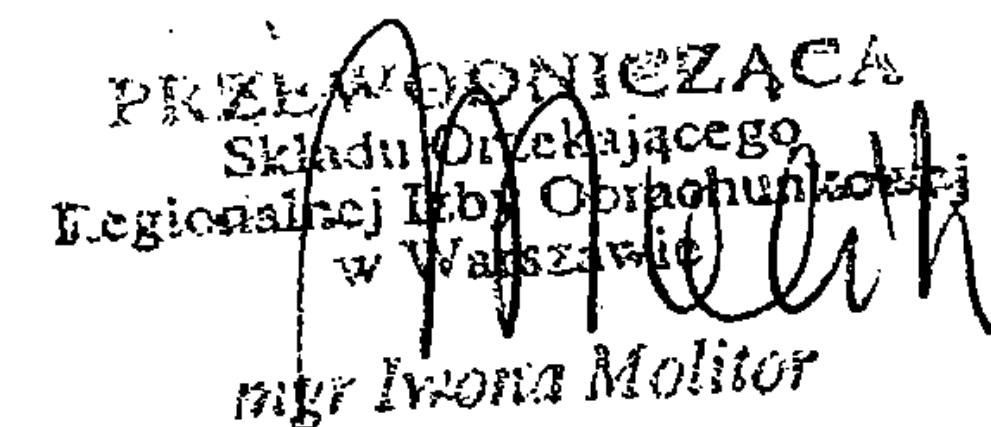 PRZEWODNICZĄCA
Składu Orzekającego
Regionalnej Izby Obrachunkowej
w Warszawie
mgr Iwona Molitor